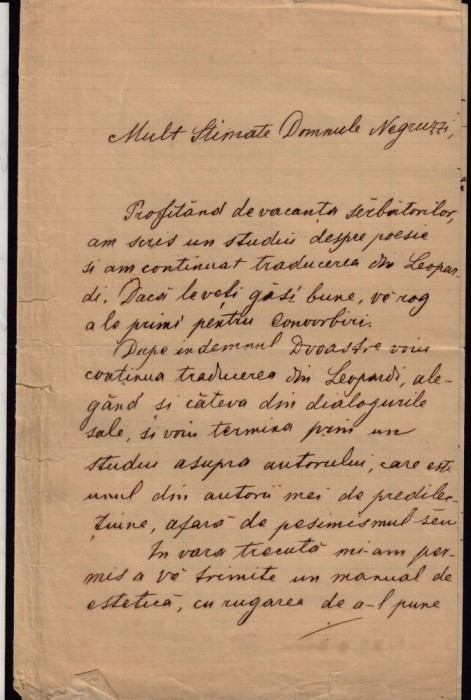 Mult Stimate Domnule Negruzzi,
Profitând de vacanța sărbătorilor,
am scris un studiu despre poesie
și am continuat traducerea din Leopar-
di. Dacă le veți găsi bune, vă rog
a le primi pentru Convorbiri.
După indemnul Dvoastre voiu
continua traducerea din Leopardi, ale-
gând și câteva din dialogurile
sale, și voiu termina prin un
studiu asupra autorului, care este
unul din autorii mei de predilec-
țiune, afară de pesimismul său
In vara trecută mi-am per-
mis a vă trimite un manual de
estetică, cu rugarea de a-l pune